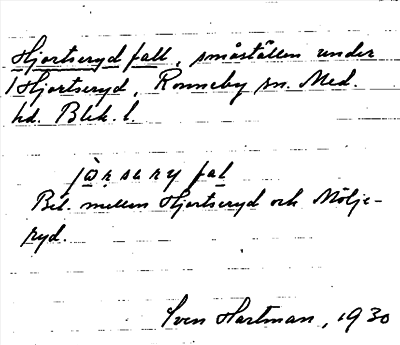 Hjortseryd fall, småställen under
1 Hjortseryd, Ronneby sn. Med.
hd. Blek. l.
jo̱ṛsary fal
Bel. mellan Hjortseryd och Mölje-
ryd.
Sven Hartman, 1930